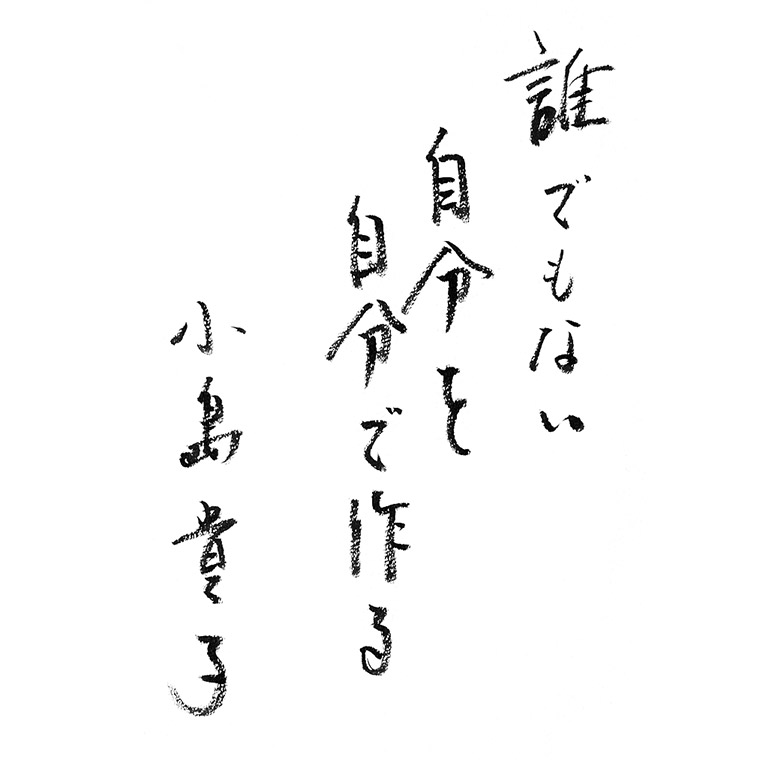 誰でもない
自分を
自分で作る
小島貴子